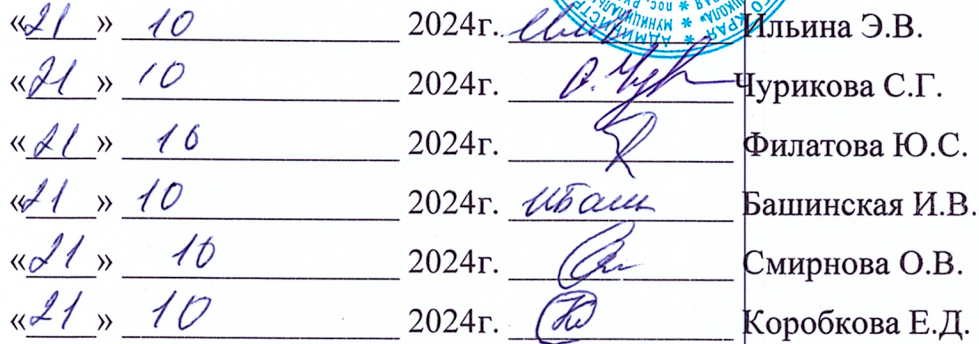 «21» 10 2024г. Ильина Э.В.
«21» 10 2024г. С. Чур Чурикова С.Г.
«21» 10 2024г. Филатова Ю.С.
«21» 10 2024г. ИБаш Башинская И.В.
«21» 10 2024г. Смирнова О.В.
«21» 10 2024г. Коробкова Е.Д.